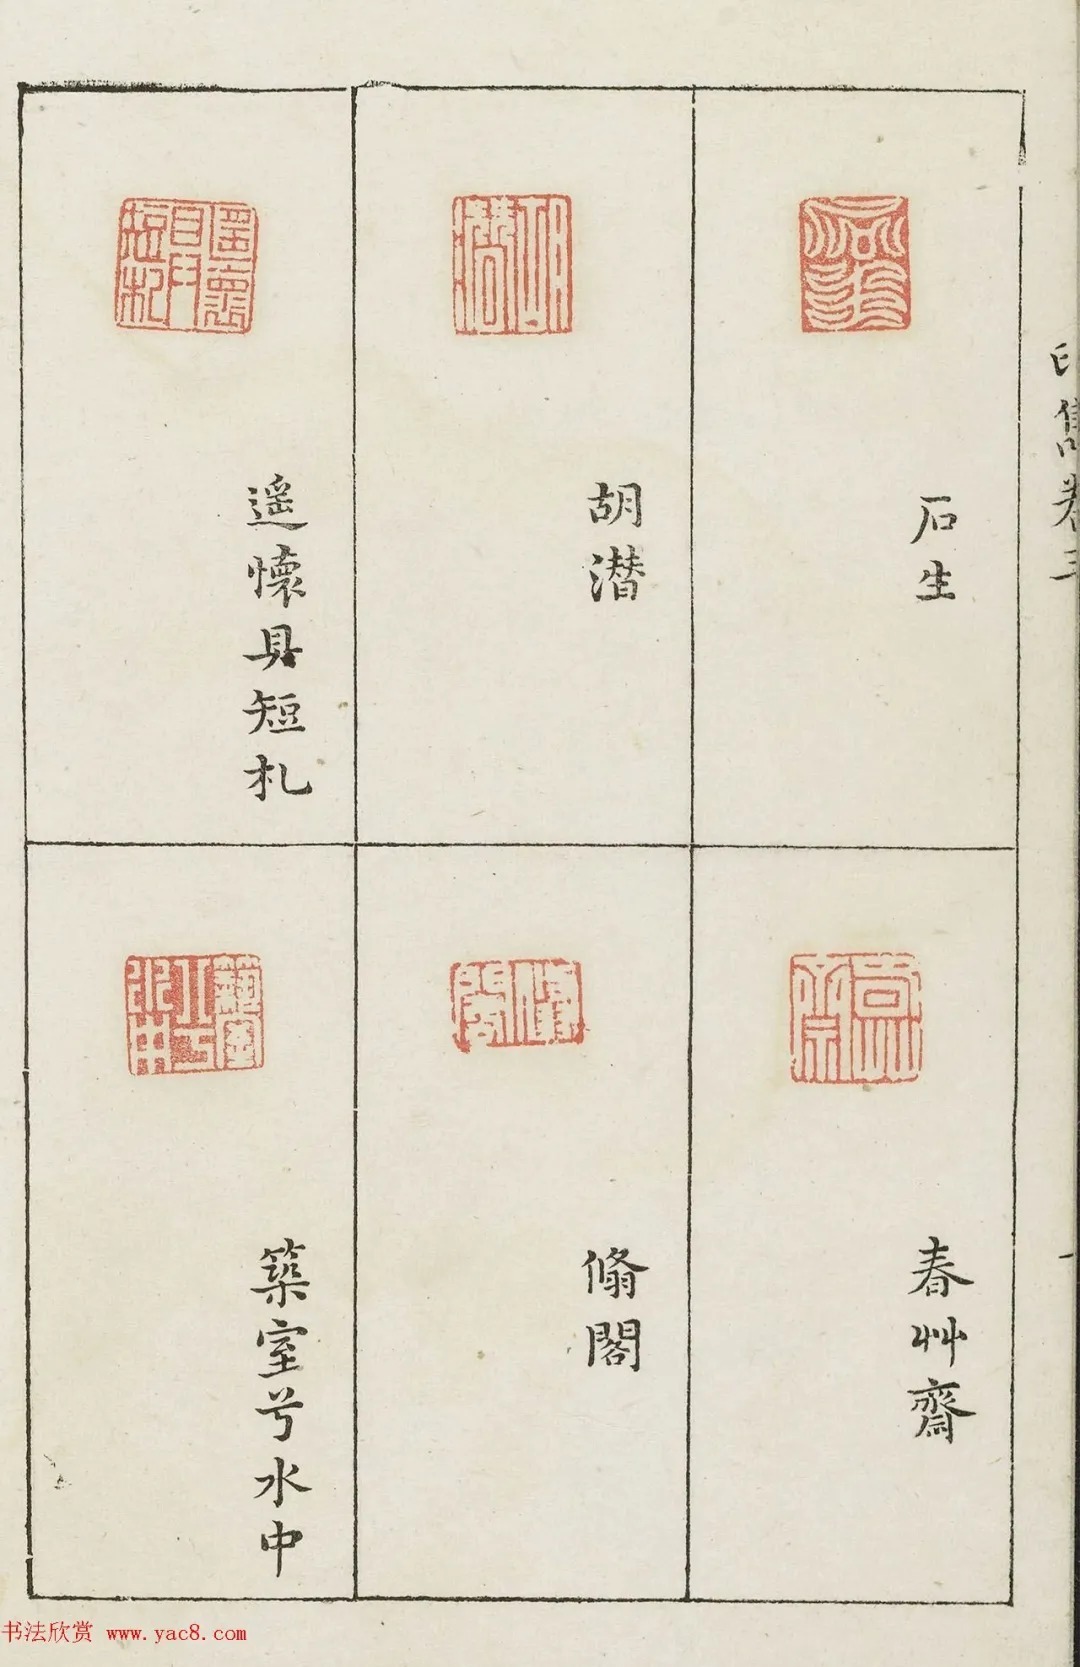 印雋卷三
石生
胡潜
遥懷具短札
春艸齋
翛閣
築室兮水中
书法欣赏 www.yac8.com